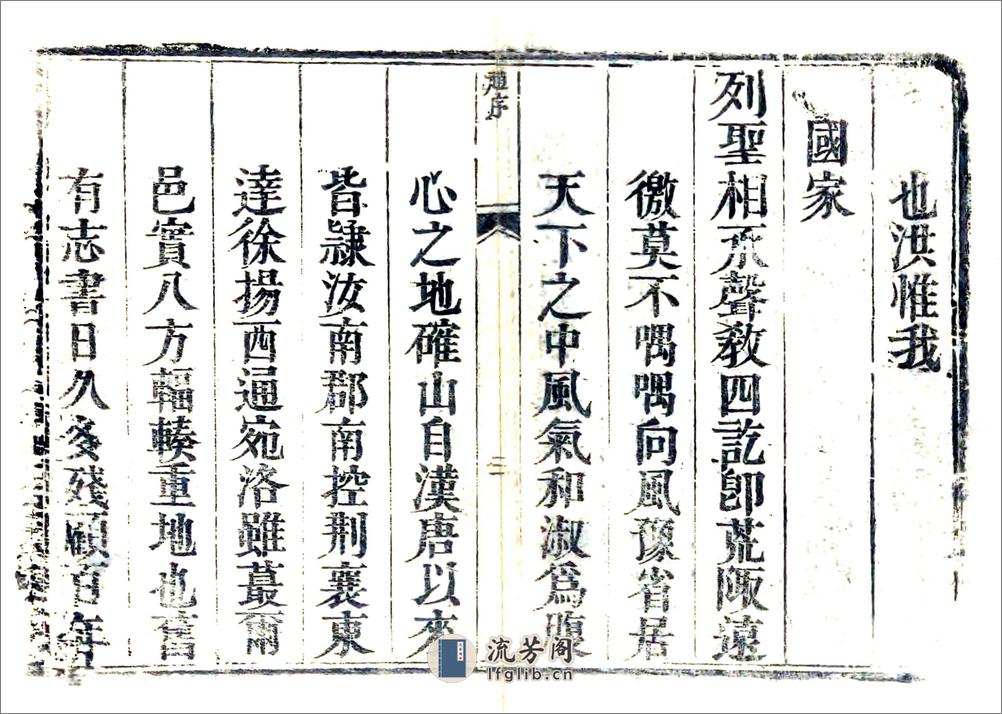 也洪惟我
國家
列聖相承聲教四訖卽荒陬遠
徼莫不喁喁向風豫省居
天下之中風氣和淑爲腹
趙序
二
心之地確山自漢唐以來
皆隷汝南郡南控荆襄東
達徐揚西通宛洛雖蕞爾
邑實八方輻輳重地也舊
有志書日久多殘顧百年
流芳阁
lfglib.cn